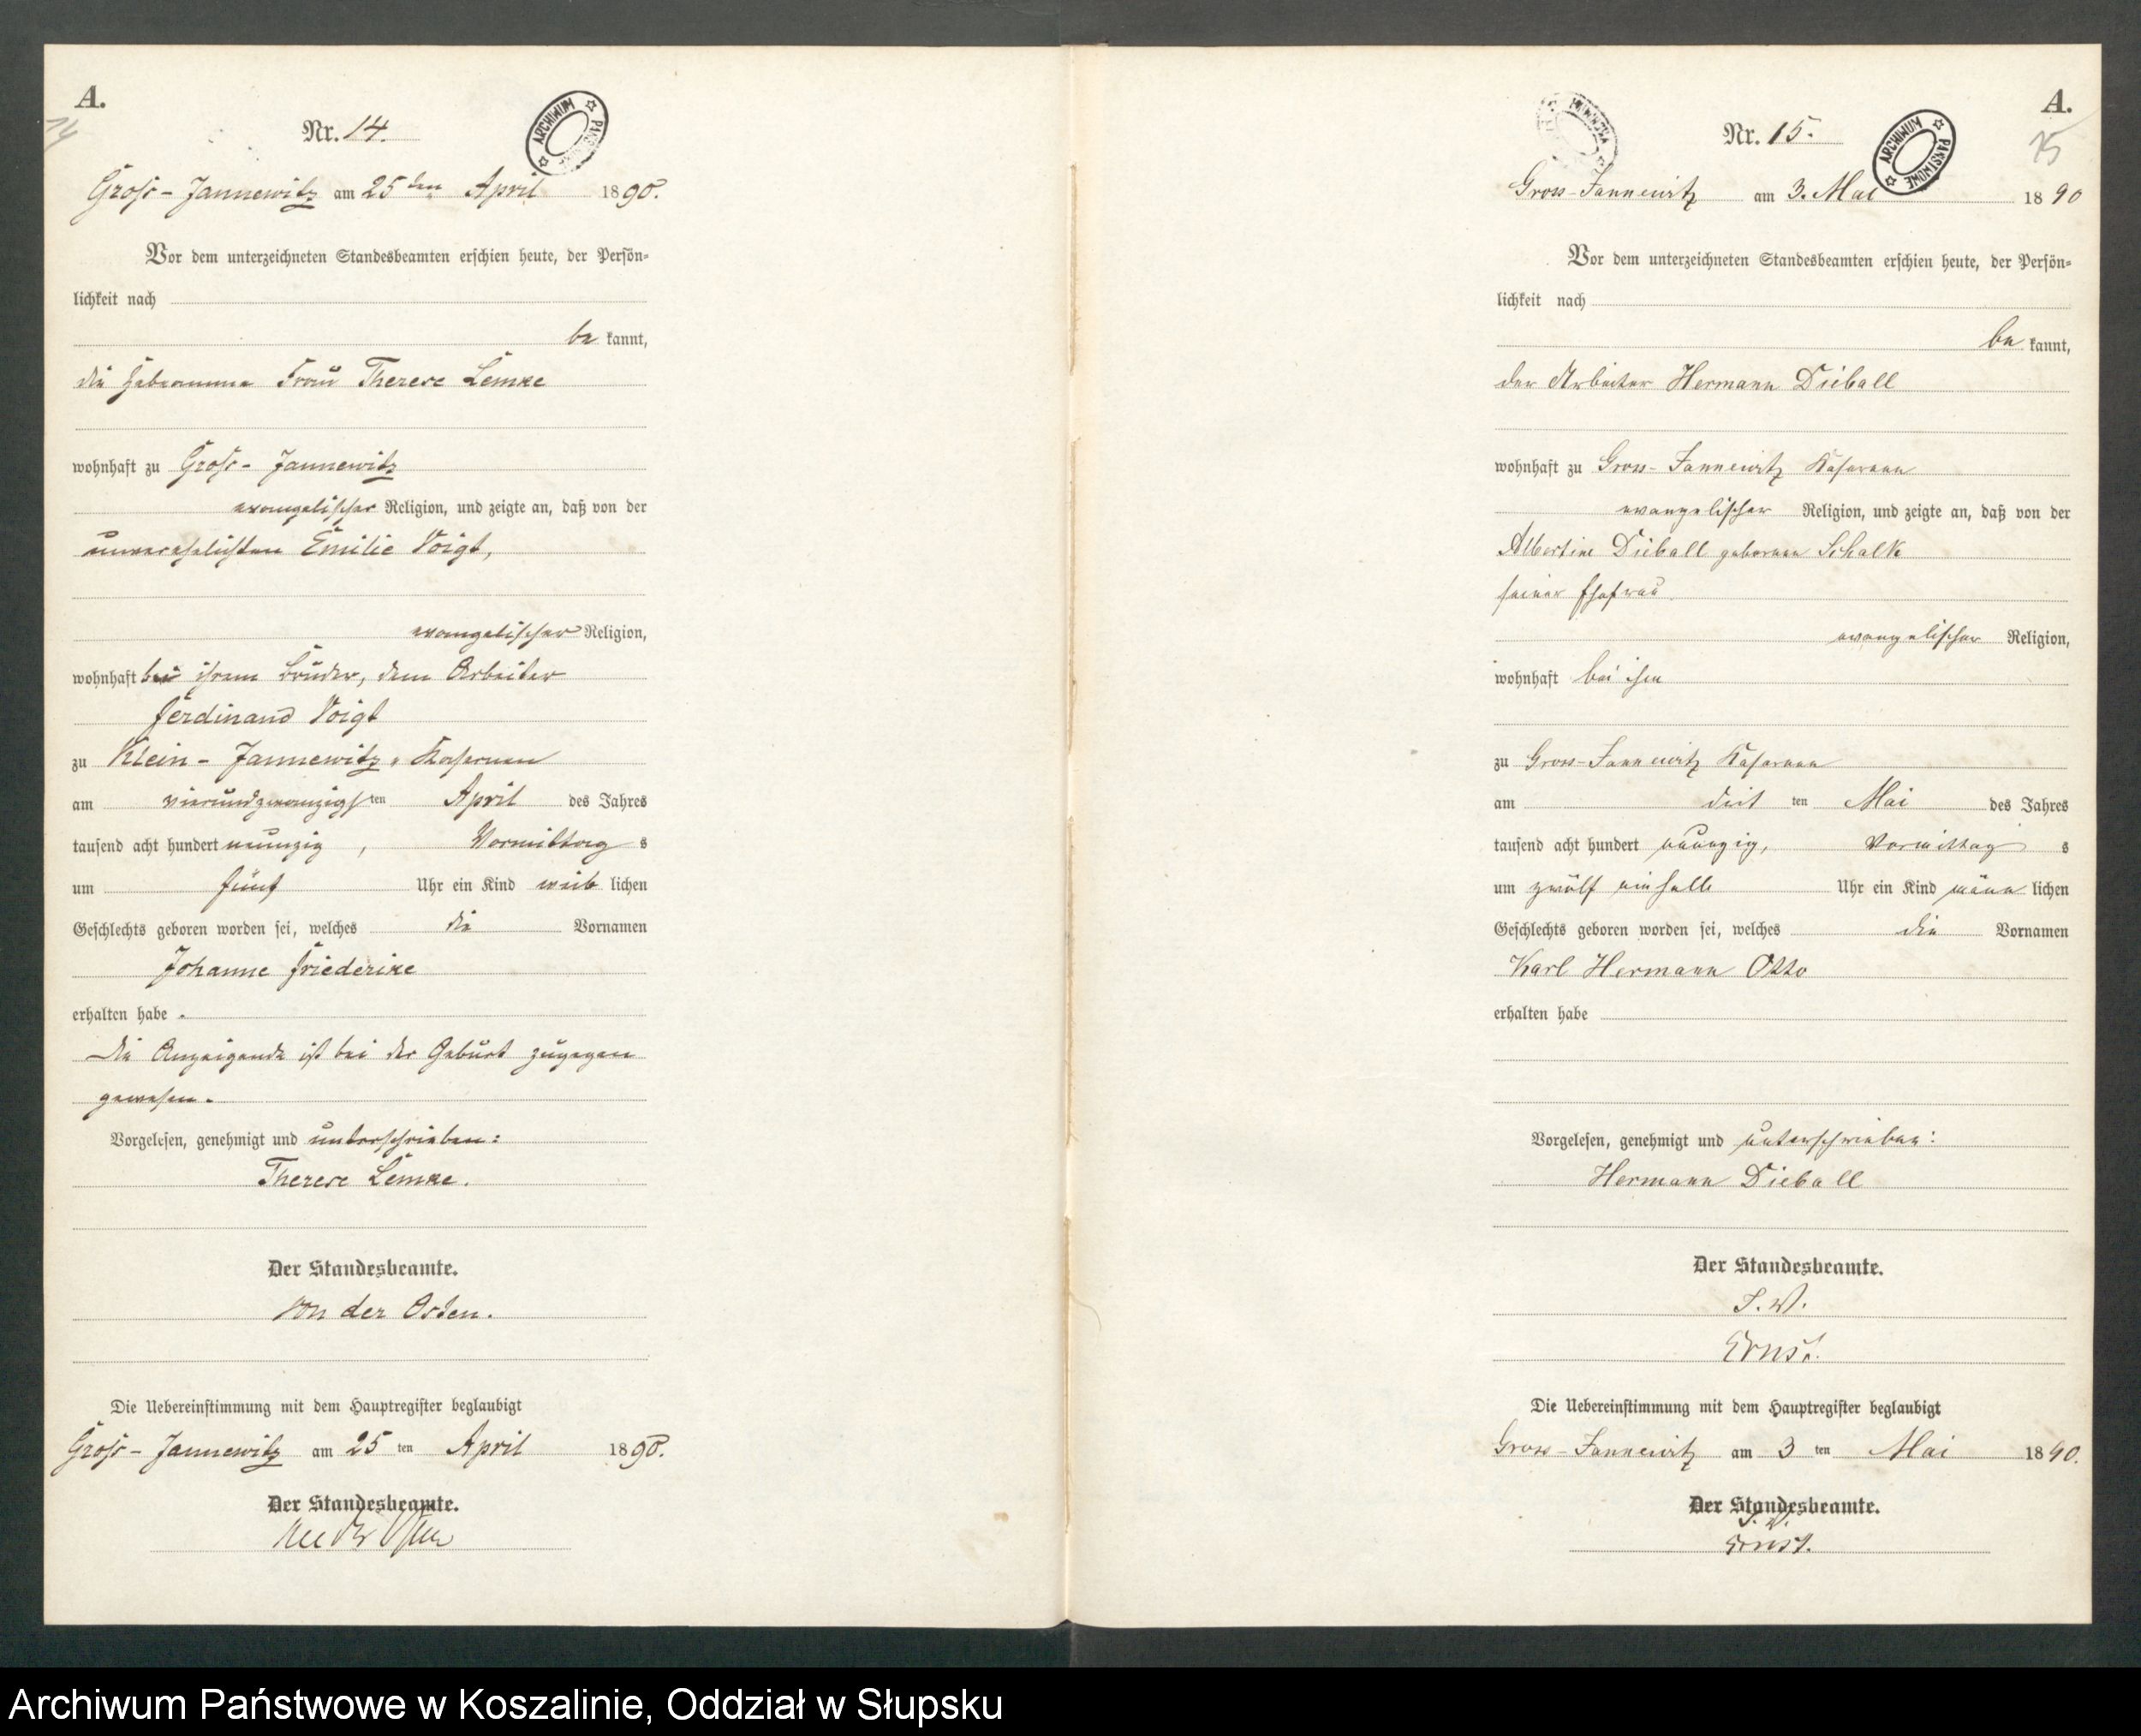 A.
14
Nr. 14.
ARCHIWUM PAŃSTWOWE
Groß-Jannewitz am 25ten April 1890.
Vor dem unterzeichneten Standesbeamten erschien heute, der Persön-
lichkeit nach
be kannt,
die Hebeamme Frau Therese Lemke
wohnhaft zu Groß-Jannewitz
evangelischer Religion, und zeigte an, daß von der
unverehelichten Emilie Voigt,
evangelischer Religion,
wohnhaft bei ihrem Bruder, dem Arbeiter
Ferdinand Voigt
zu Klein-Jannewitz, Kasernen
am vierundzwanzigsten April des Jahres
tausend acht hundert neunzig, Vormittags
um fünf Uhr ein Kind weiblichen
Geschlechts geboren worden sei, welches die Vornamen
Johanne Friederike
erhalten habe.
Die Anzeigende ist bei der Geburt zugegen
gewesen.
Vorgelesen, genehmigt und unterschrieben:
Therese Lemke.
Der Standesbeamte.
von der Osten.
Die Uebereinstimmung mit dem Hauptregister beglaubigt
Groß-Jannewitz am 25ten April 1890.
Der Standesbeamte.
von der Osten
A.
15
Nr. 15.
ARCHIWUM PAŃSTWOWE
Gross-Jannewitz am 3. Mai 1890
Vor dem unterzeichneten Standesbeamten erschien heute, der Persön-
lichkeit nach
be kannt,
der Arbeiter Hermann Dieball
wohnhaft zu Gross-Jannewitz Kasernen
evangelischer Religion, und zeigte an, daß von der
Albertine Dieball geborenen Schalk
seiner Ehefrau
evangelischer Religion,
wohnhaft bei ihm
zu Gross-Jannewitz Kasernen
am dritten Mai des Jahres
tausend acht hundert neunzig, Vormittags
um zwölf einhalb Uhr ein Kind männlichen
Geschlechts geboren worden sei, welches die Vornamen
Karl Hermann Otto
erhalten habe
Vorgelesen, genehmigt und unterschrieben:
Hermann Dieball
Der Standesbeamte.
I. V.
Ernst.
Die Uebereinstimmung mit dem Hauptregister beglaubigt
Gross-Jannewitz am 3ten Mai 1890.
Der Standesbeamte.
I. V.
Ernst.
Archiwum Państwowe w Koszalinie, Oddział w Słupsku